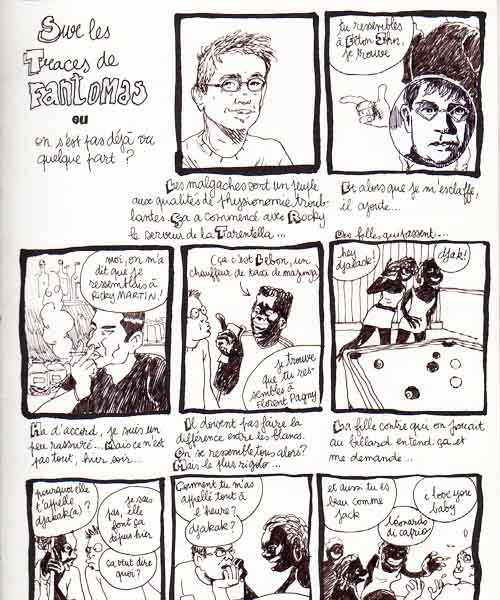 Sur les
Traces de
Fantomas
ou
on s'est pas déjà vu
quelque part ?
tu ressembles
à Elton John,
je trouve
Les malgaches sont un peuple
aux qualités de physionomie troub-
lantes. Ça a commencé avec Rocky
le serveur de la Tarentella...
Et alors que je m'esclaffe,
il ajoute...
moi, on m'a
dit que je
ressemblais à
Ricky MARTIN !
Ha d'accord, je suis un
peu rassuré... Mais ce n'est
pas tout, hier soir...
(ça c'est Bebon, un
chauffeur de taxi de majunga
je trouve
que tu res-
sembles à
Florent Pagny
Ils doivent pas faire la
différence entre les blancs.
On se ressemble tous alors ?
Mais le plus rigolo...
Des filles qui passent...
hey
djakack !
djak !
La fille contre qui on jouait
au billard entend ça et
me demande...
pourquoi elle
t'appelle
djakak(a) ?
je sais
pas, elle
font ça
depuis hier
ça veut dire
quoi ?
Comment tu m'as
appellé tout à
l'heure ?
djakak ?
et aussi tu es
beau comme
jack
i love you
baby
léonardo
di caprio